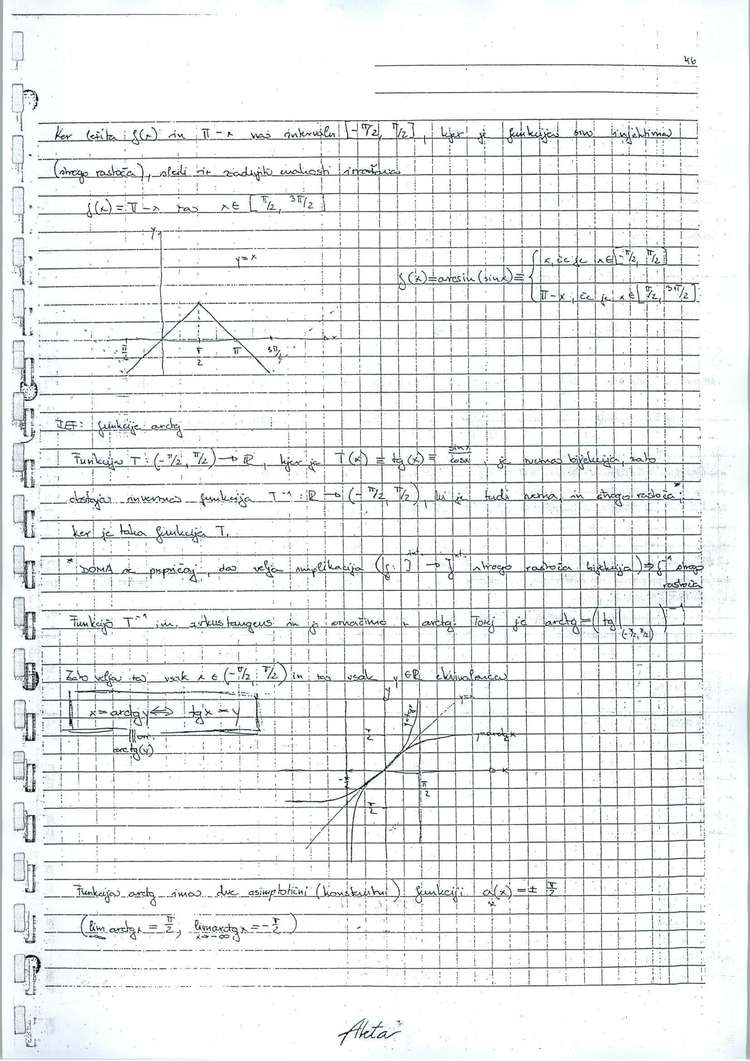 46
Ker ležita f(x) in π-x na intervalu [-π/2, π/2], kjer je funkcija sin injektivna
(strogo rastoča), sledi iz zadnjih enakosti
f(x) = π-x za x ∈ [π/2, 3π/2]
y
y=x
f(x)=arcsin(sinx)= { x, če je x∈[-π/2, π/2]
π-x, če je x∈[π/2, 3π/2]
x
π/2 π 3π/2
DEF: funkcije arctg
Funkcija T: (-π/2, π/2) → ℝ, kjer je T(x) = tg(x) = sinx/cosx, je zvezna bijekcija, zato
obstaja inverzna funkcija T⁻¹: ℝ → (-π/2, π/2), ki je tudi zvezna in strogo rastoča*,
ker je taka funkcija T.
*DOMA se prepričaj, da velja implikacija (f: J → J strogo rastoča bijekcija) ⇒ f⁻¹ strogo
rastoča
Funkcijo T⁻¹ im. arkustangens in jo označimo z arctg. Torej je arctg = (tg|(-π/2, π/2))⁻¹
Zato velja za vsak x ∈ (-π/2, π/2) in za vsak y ∈ ℝ ekvivalenca
x = arctgy ⇔ tgx = y
arctg(y)
y
y=x
y=tgx
π/2
y=arctgx
x
-π/2
π/2
-π/2
Funkcija arctg ima dve asimptotični (konstantni) funkciji a(x) = ± π/2
(lim arctgx = π/2, lim x→-∞ arctgx = -π/2)